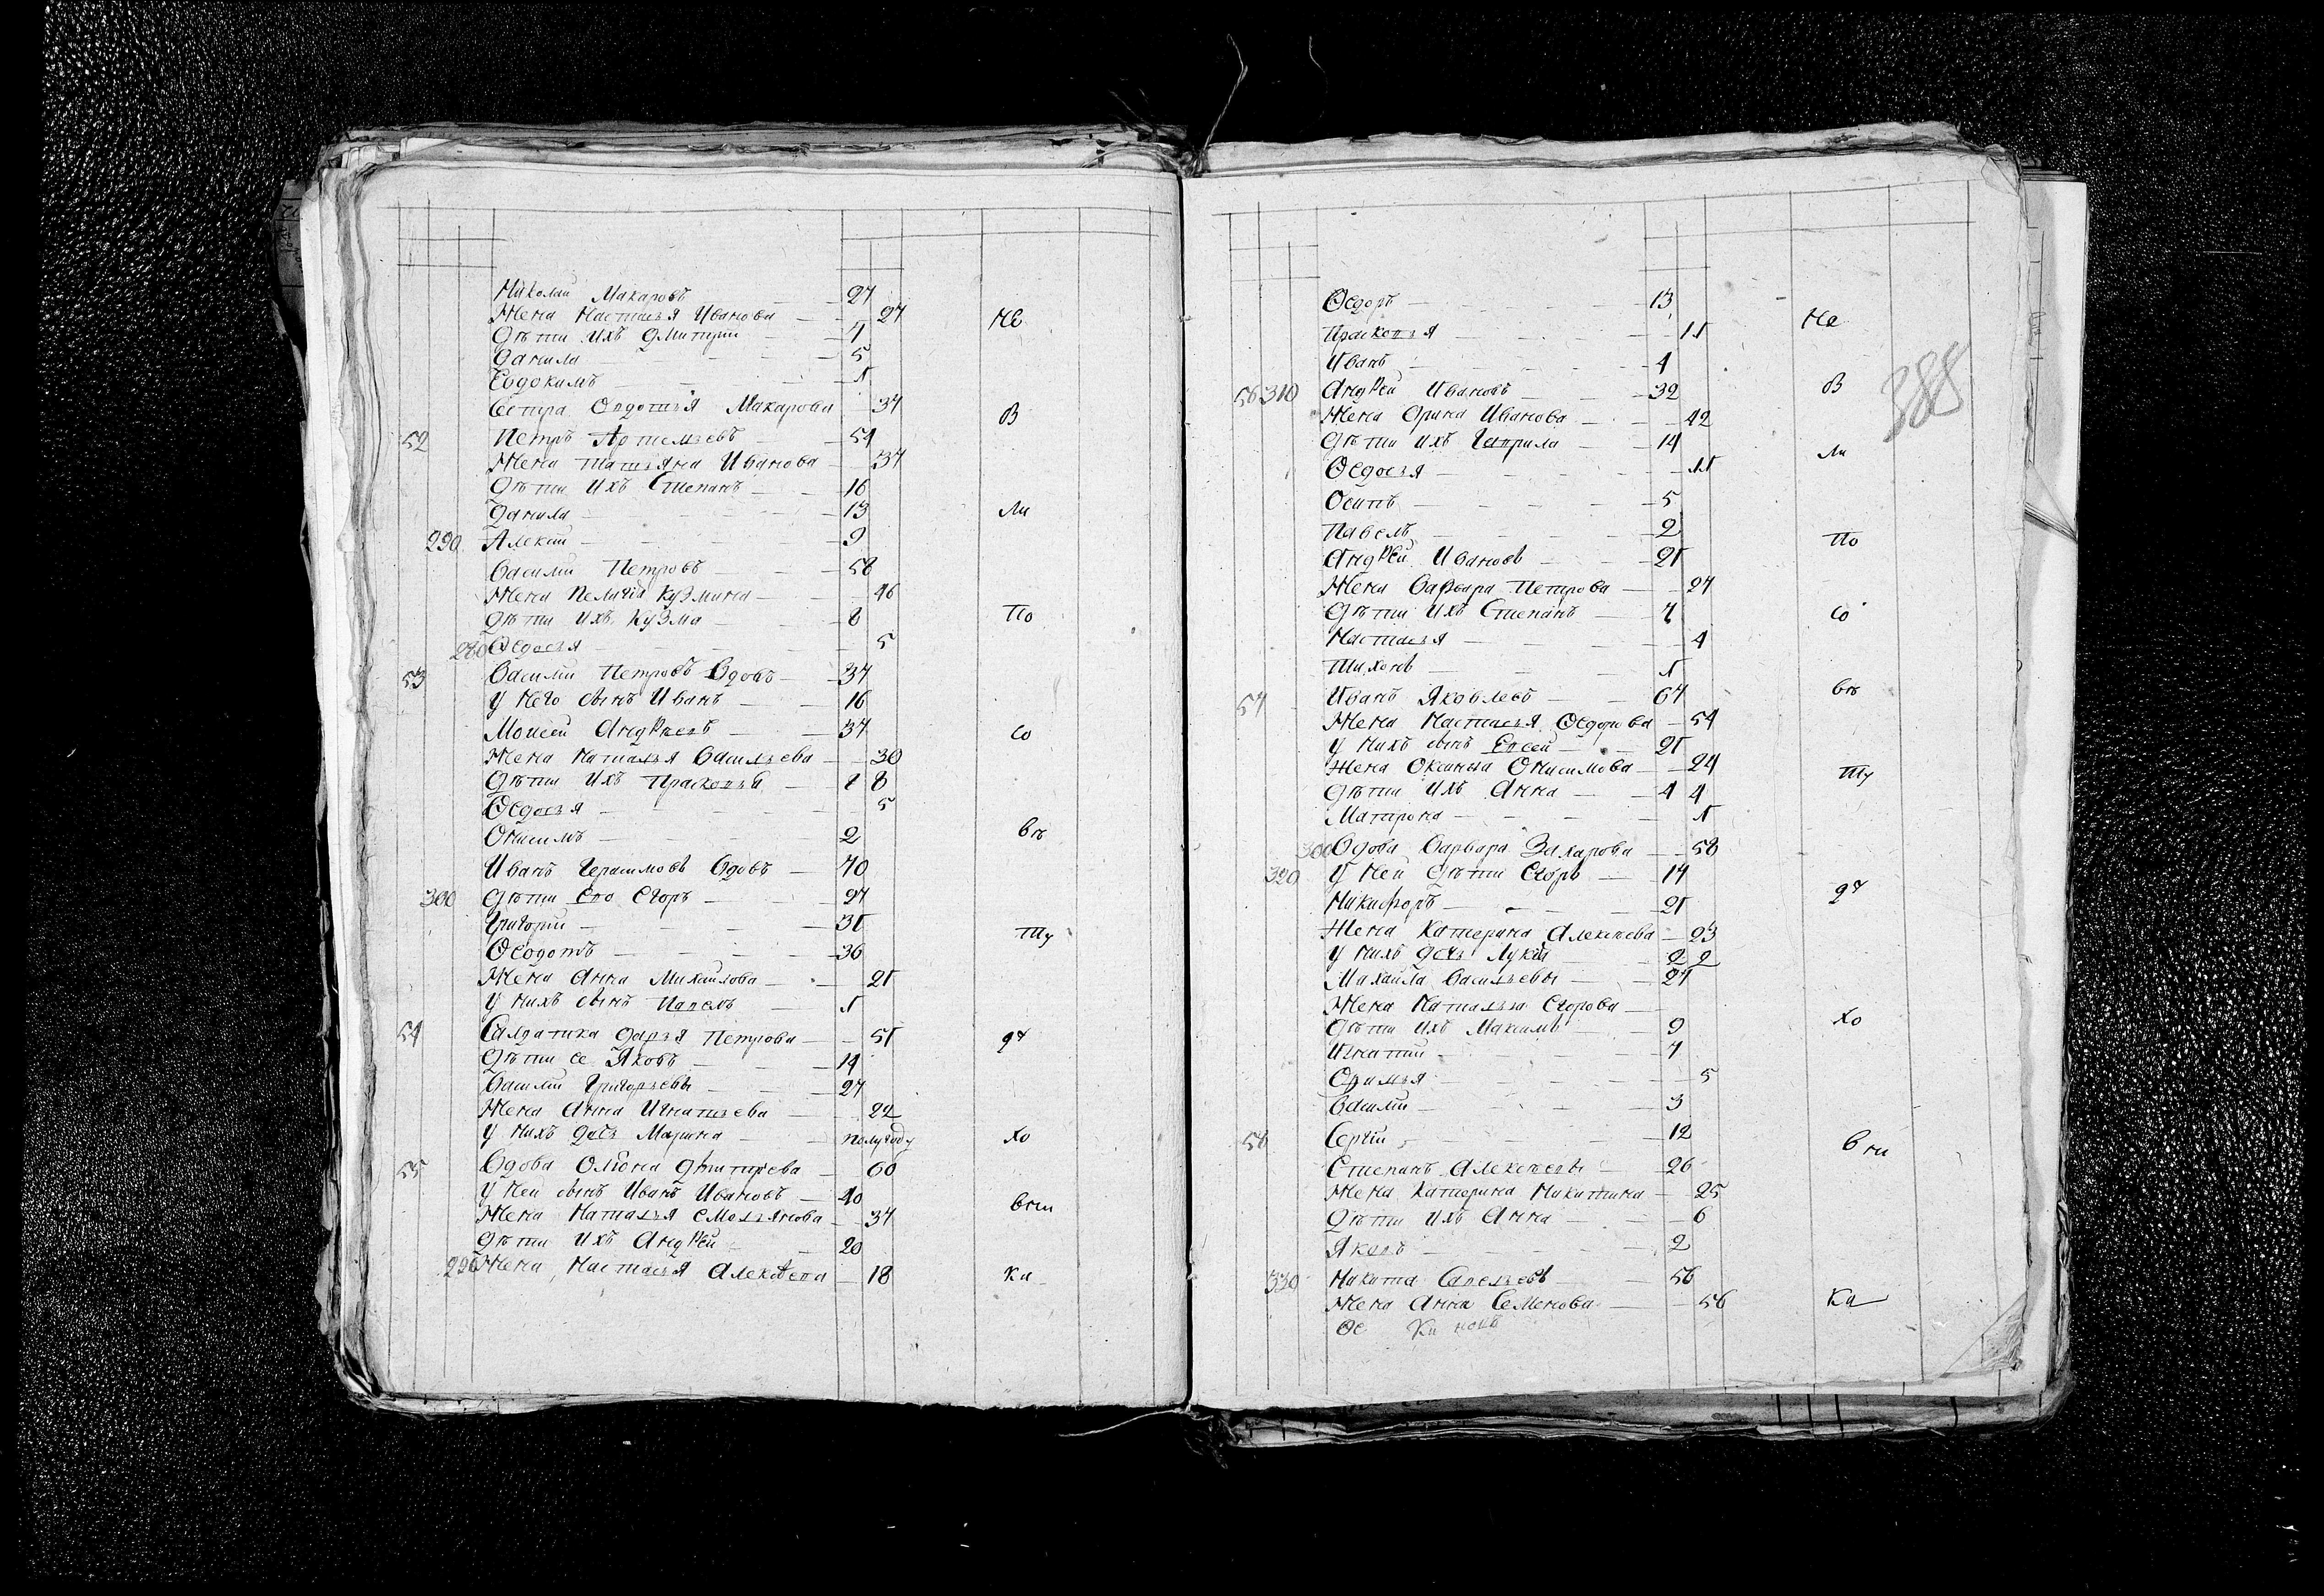 Николай Макаровъ — 27
Жена Настасья Иванова — 27 Не
Дѣти ихъ Дмитрий — 7
Данила — 5
Евдокимъ — 1
Сестра Овдотья Макарова — 37 В
52 Петръ Артемьевъ — 51
Жена Татьяна Иванова — 37
Дѣти ихъ Степанъ — 16
Данила — 13 Ли
290 Алексий — 9
Василий Петровъ — 58
Жена Пелагія Кузмина — 46
Дѣти ихъ Кузма — 8 По
280 Ѳедосья — 5
53 Василий Петровъ Вдовъ — 37
У него сынъ Иванъ — 16
Моисей Андрѣевъ — 37 Со
Жена Наталья Васильева — 30
Дѣти ихъ Прасковья — 8
Ѳедосья — 5
Онисимъ — 2 Вѣ
Иванъ Герасимовъ Вдовъ — 70
300 Дѣти Его Егоръ — 27
Григорий — 31
Ѳеодотъ — 36 Ту
Жена Анна Михайлова — 21
У нихъ сынъ Павелъ — 1
54 Салдатка Дарья Петрова — 51 дч
Дѣти Ее Яковъ — 14
Василий Григорьевъ — 27
Жена Анна Игнатьева — 22
У нихъ дочь Марина — полугоду Хо
55 Вдова Олiона Дмитрiева — 60
У ней сынъ Иванъ Ивановъ — 40
Жена Наталья Емельянова — 37
Дѣти ихъ Андрѣй — 20
290 Жена Настасья Алексѣева — 18 Ка
Ѳедоръ — 13
Прасковья — 11 Не
Иванъ — 4
388
56 310 Андрѣй Ивановъ — 32 В
Жена Орина Иванова — 42
Дѣти ихъ Гаврила — 14
Ѳедосья — 11 Ли
Осипъ — 5
Павелъ — 2
Андрѣй Ивановъ — 21 По
Жена Варвара Петрова — 27
Дѣти ихъ Степанъ — 7 Со
Настасья — 4
Тихонъ — 1
57 Иванъ Яковлевъ — 67 Вѣ
Жена Настасья Ѳедорова — 54
У нихъ сынъ Евсей — 21
Жена Оксинья Онисимова — 24 Ту
Дѣти ихъ Анна — 4
Матрона — 1
300 Вдова Варвара Захарова — 58
320 У ней Дѣти Егоръ — 17
Никифоръ — 21 дч
Жена Катерина Алексѣева — 23
У нихъ дочь — 2
Михайла Васильевъ — 27
Жена Наталья Егорова —
Дѣти ихъ Максимъ — 9 Хо
Игнатий — 7
Офимья — 5
Василий — 3
58 Сергiй — 12
Степанъ Алексѣевъ — 26
Жена Катерина Никитина — 25
Дѣти ихъ Анна — 6
Яковъ — 2
330 Никита Савельевъ — 56
Жена Анна Семенова — 56 Ка